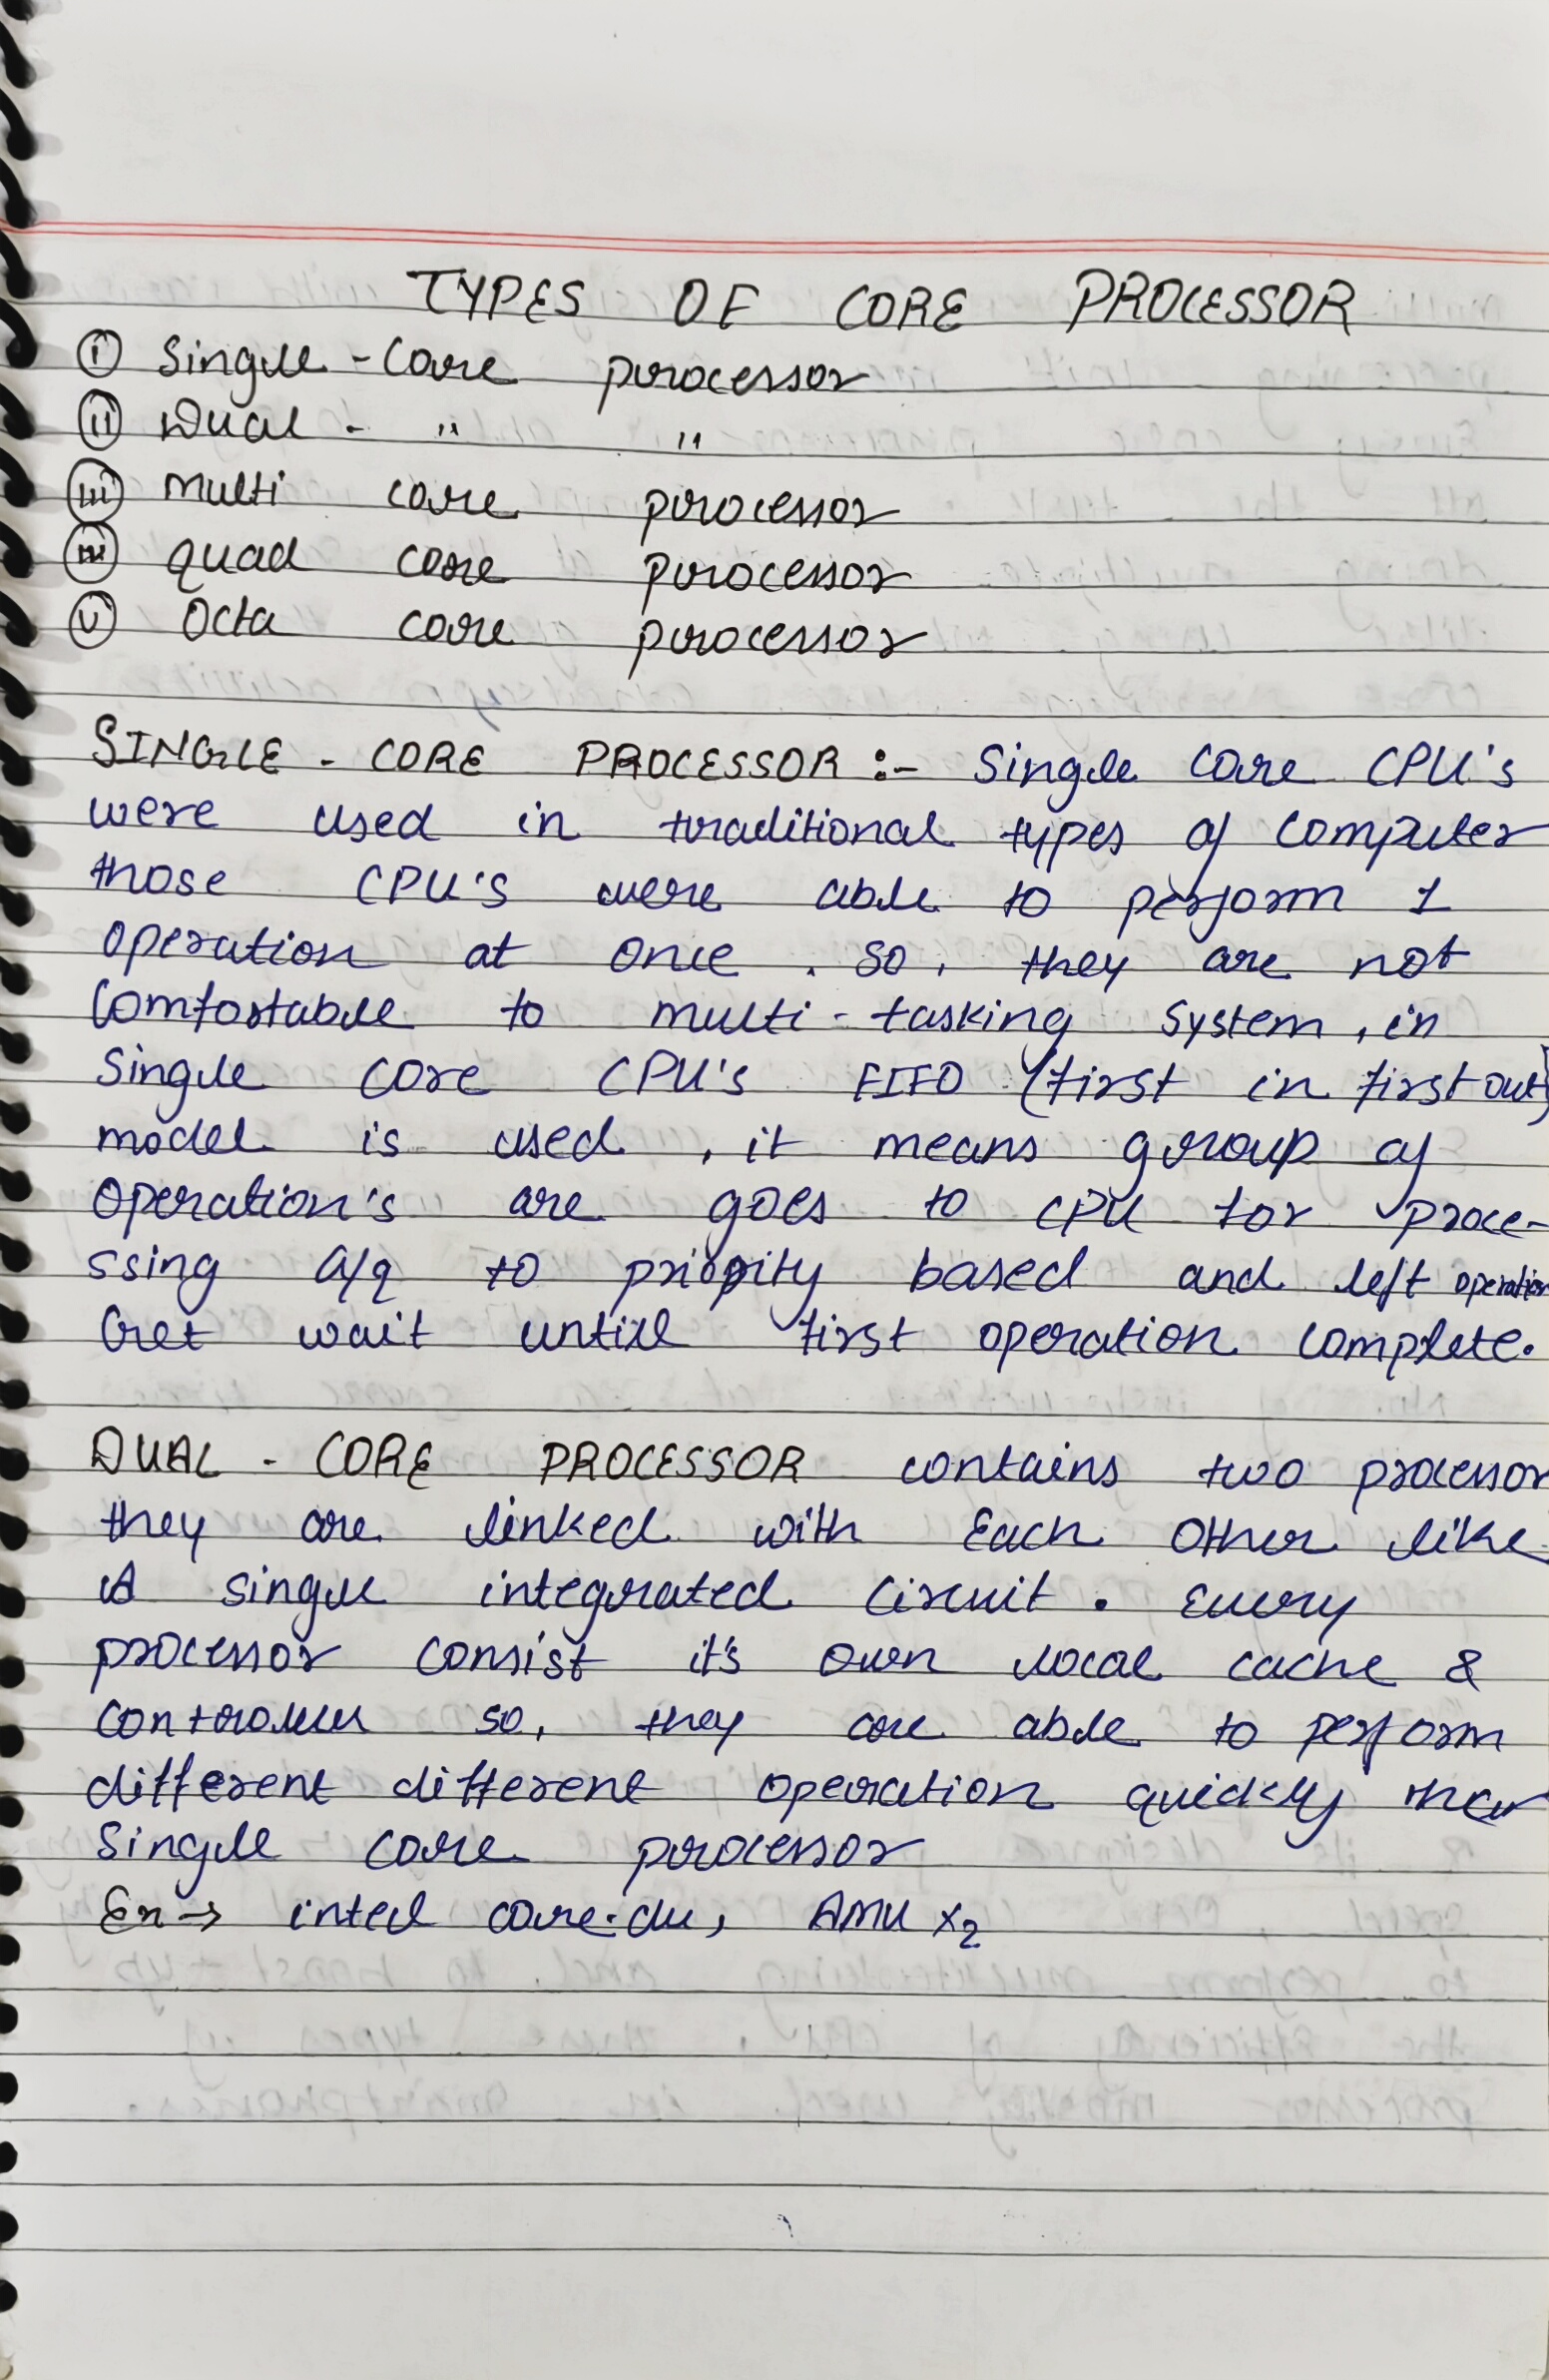 TYPES OF CORE PROCESSOR
(i) Single - Core processor
(ii) Dual - " "
(iii) Multi core processor
(iv) quad core processor
(v) Octa core processor
SINGLE - CORE PROCESSOR :- Single Core CPU's
were used in traditional types of Computer
those CPU's were able to perform 1
operation at once . So , they are not
Comfortable to multi - tasking System , in
Single core CPU's FIFO (first in first out)
model is used , it means group of
operation's are goes to CPU for proce-
ssing a/q to priority based and left operation
Get wait untill first operation Complete.
DUAL - CORE PROCESSOR contains two processor
they are linked with Each Other like
A single integrated Circuit . Every
processor consist it's own local cache &
controller so, they are able to perform
different different operation quickly than
Single core processor
Ex → intel core-du, AMU X2